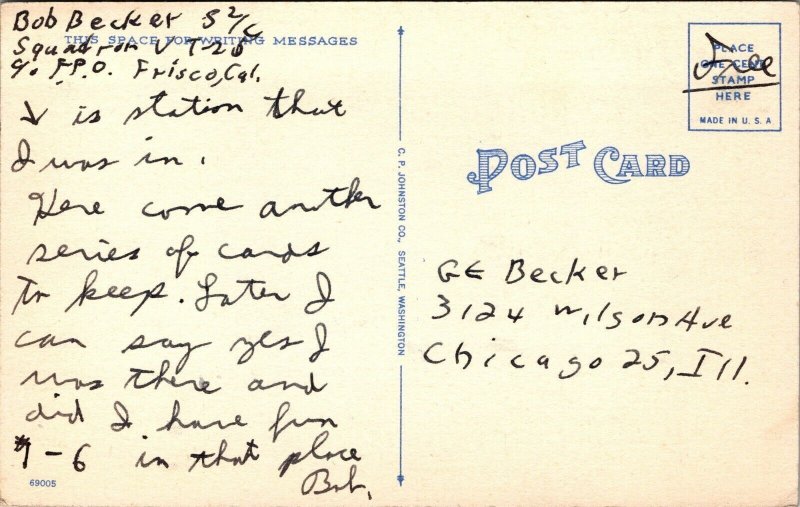 Bob Becker S 2/c
THIS SPACE FOR WRITING MESSAGES
Squadron VT-28
% F.P.O. Frisco, Cal.
↓ is station that
I was in.
Here come another
series of cards
to keep. Later I
can say yes I
was there and
did I have fun
#1-6 in that place
Bob.
69005
C. P. JOHNSTON CO., SEATTLE, WASHINGTON
PLACE
ONE CENT
STAMP
HERE
MADE IN U. S. A
Free
POST CARD
GE Becker
3124 Wilson Ave
Chicago 25, Ill.